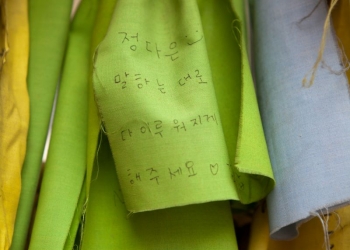 정다은
말하는 대로
다 이루워지게
해주세요 ♡